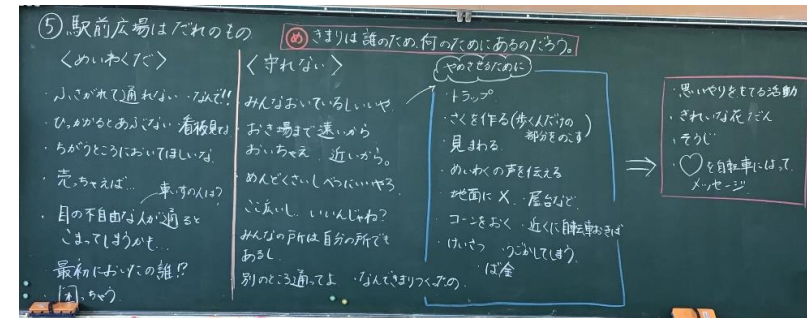 ⑤駅前広場はだれのもの
め きまりは誰のため、何のためにあるのだろう。
〈めいわくだ〉
・ふさがれて通れない ・なんで!!
・ひっかかるとあぶない 看板見てよ
・ちがうところにおいてほしいな。
・売っちゃえば…
車いすの人は?
・目の不自由な人が通ると
こまってしまうかも…
最初においたの誰!?
・困っちゃう
〈守れない〉
みんなおいているしいいや。
おき場まで遠いから
おいちゃえ 近いから。
めんどくさいしべつにいいやろ
ここ広いし.. いいんじゃね?
みんなの所は自分の所でも
あるし
別のところ通ってよ ・なんできまりつくったの
やめさせるために
・トラップ
・さくを作る(歩く人だけの
部分をのこす)
・見まわる
・めいわくの声を伝える
・地面に× ・屋台など
・コーンをおく ・近くに自転車おきば
・けいさつ ・うごかしてしまう
・ば金
⇒
・思いやりをもてる活動
・きれいな花だん
・そうじ
・♡を自転車にはって
メッセージ